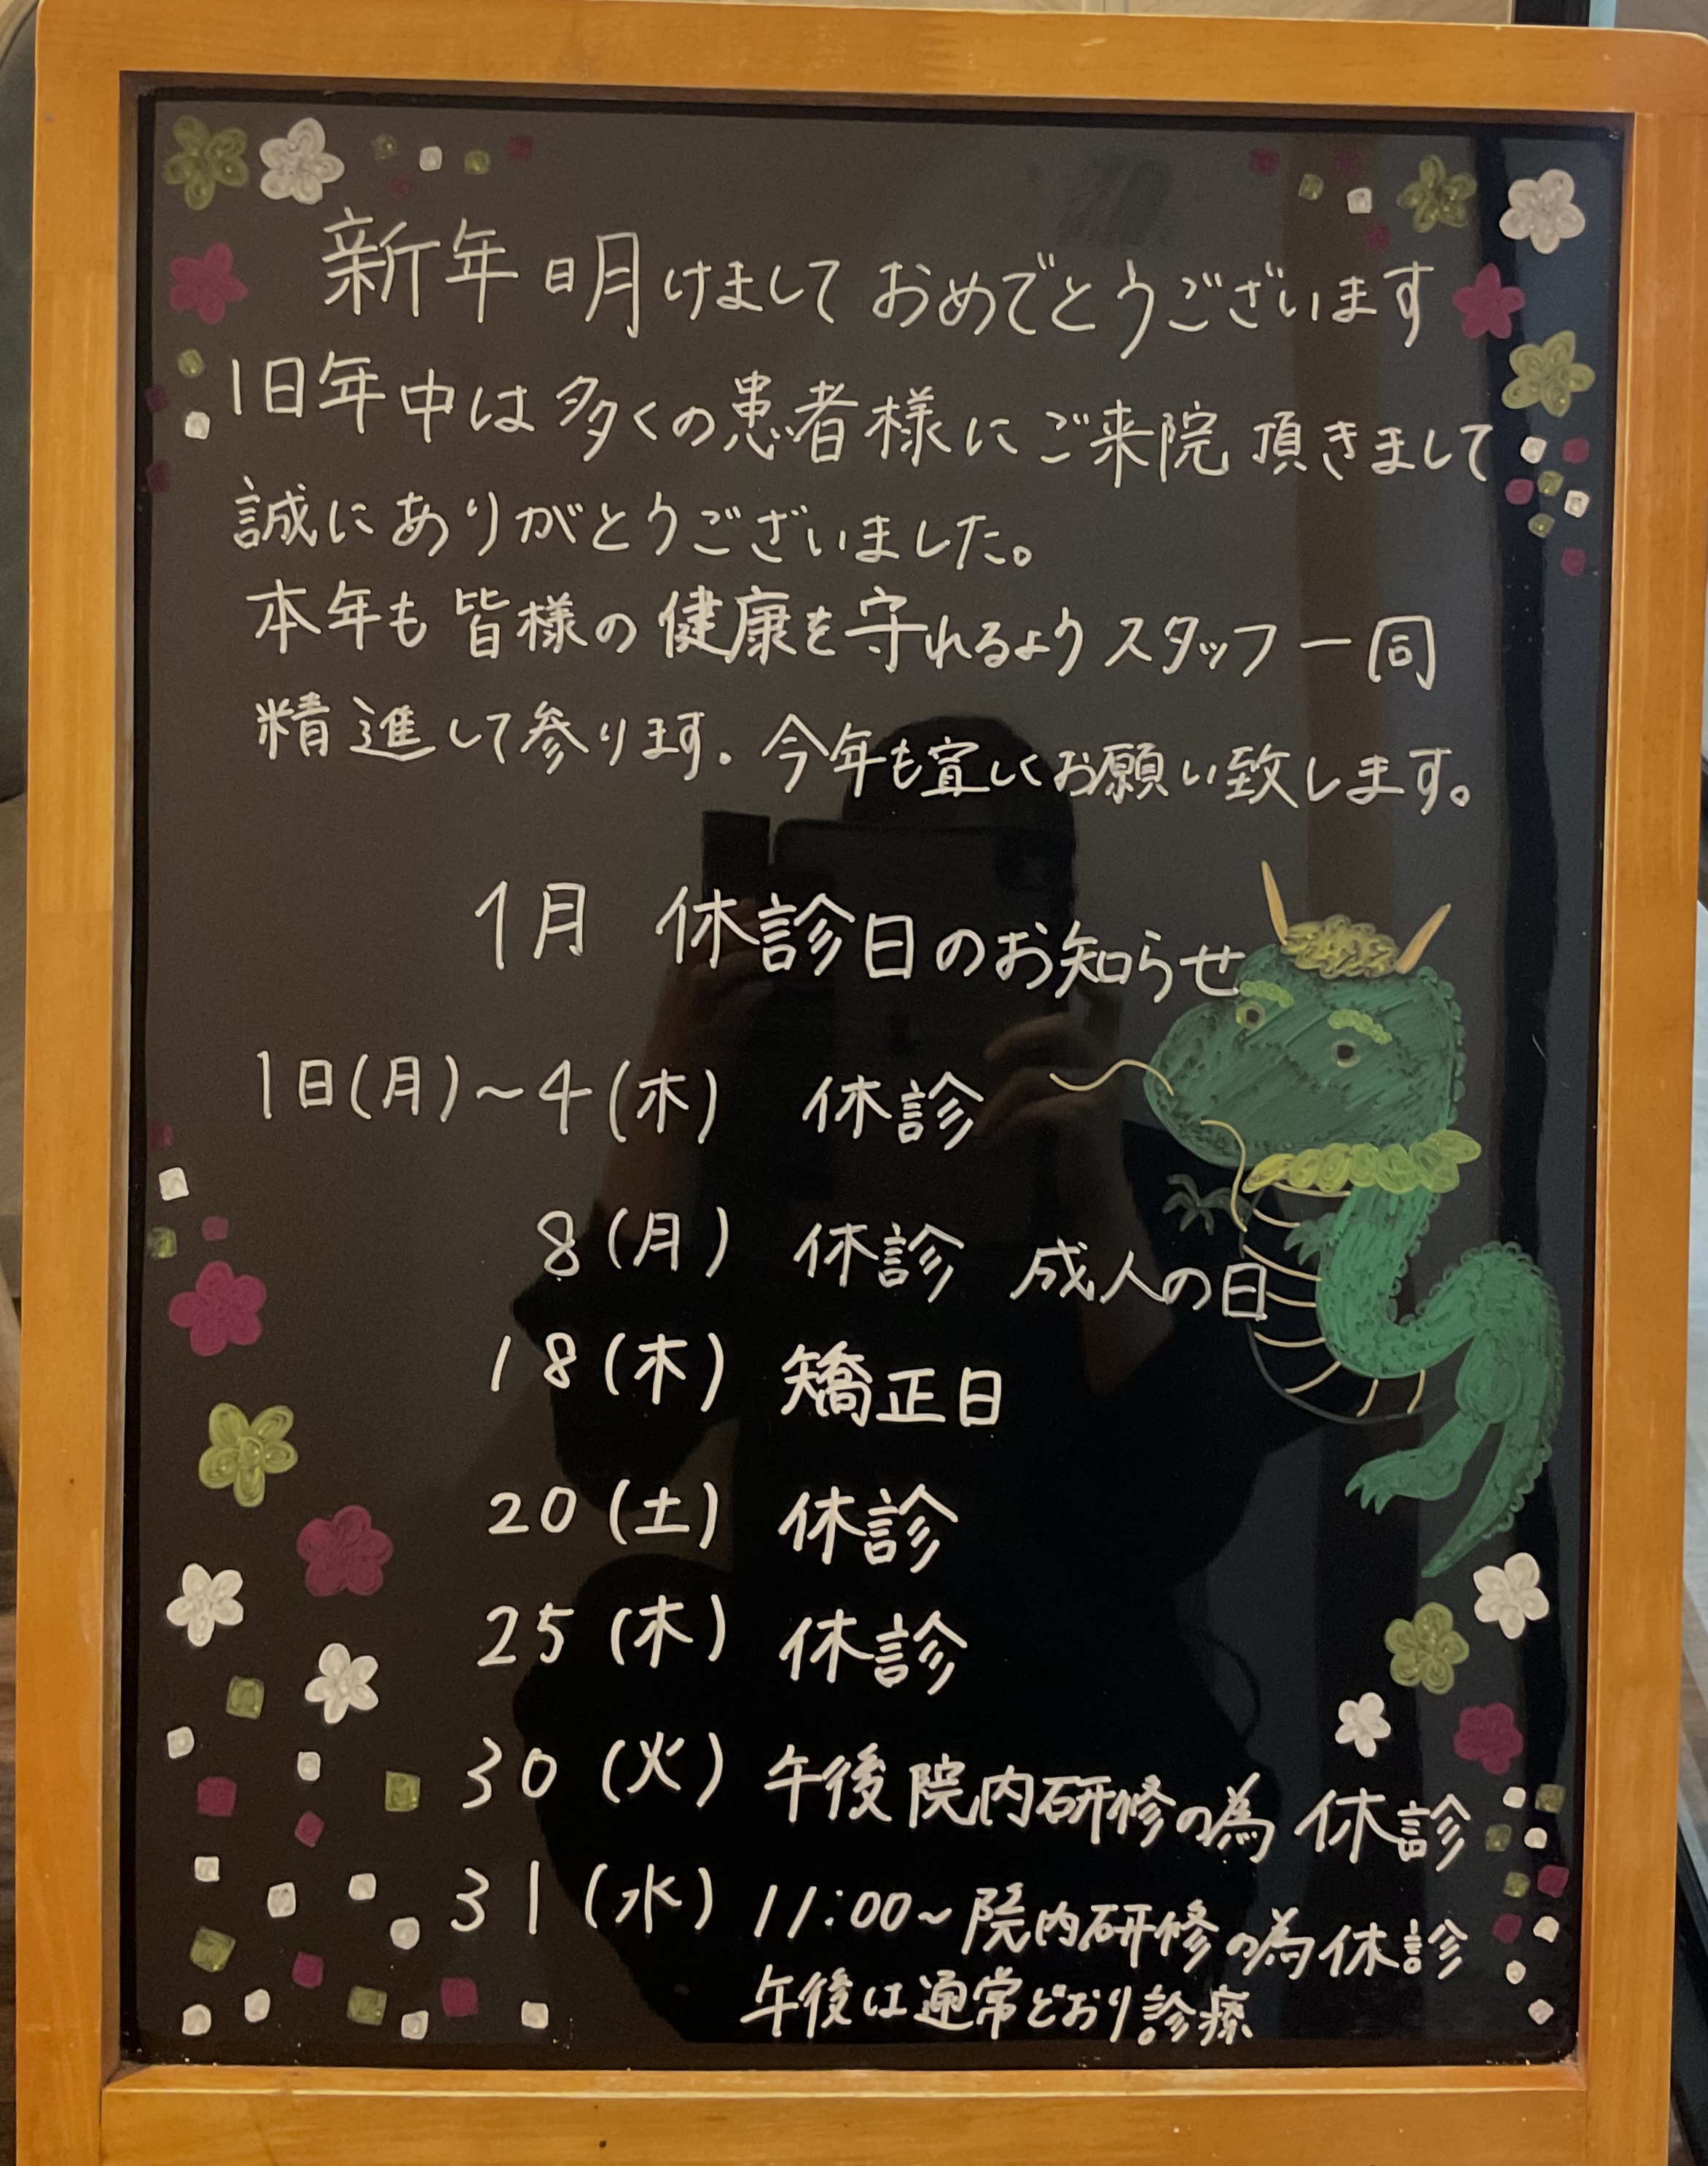 新年 明けまして おめでとうございます
旧年中は多くの患者様にご来院 頂きまして
誠にありがとうございました。
本年も皆様の健康を守れるようスタッフ一同
精進して参ります。今年も宜しくお願い致します。
1月 休診日のお知らせ
1日(月)~4(木) 休診
8(月) 休診 成人の日
18(木) 矯正日
20(土) 休診
25(木) 休診
30(火) 午後 院内研修の為 休診
31(水) 11:00~院内研修の為 休診
午後は通常どおり診療